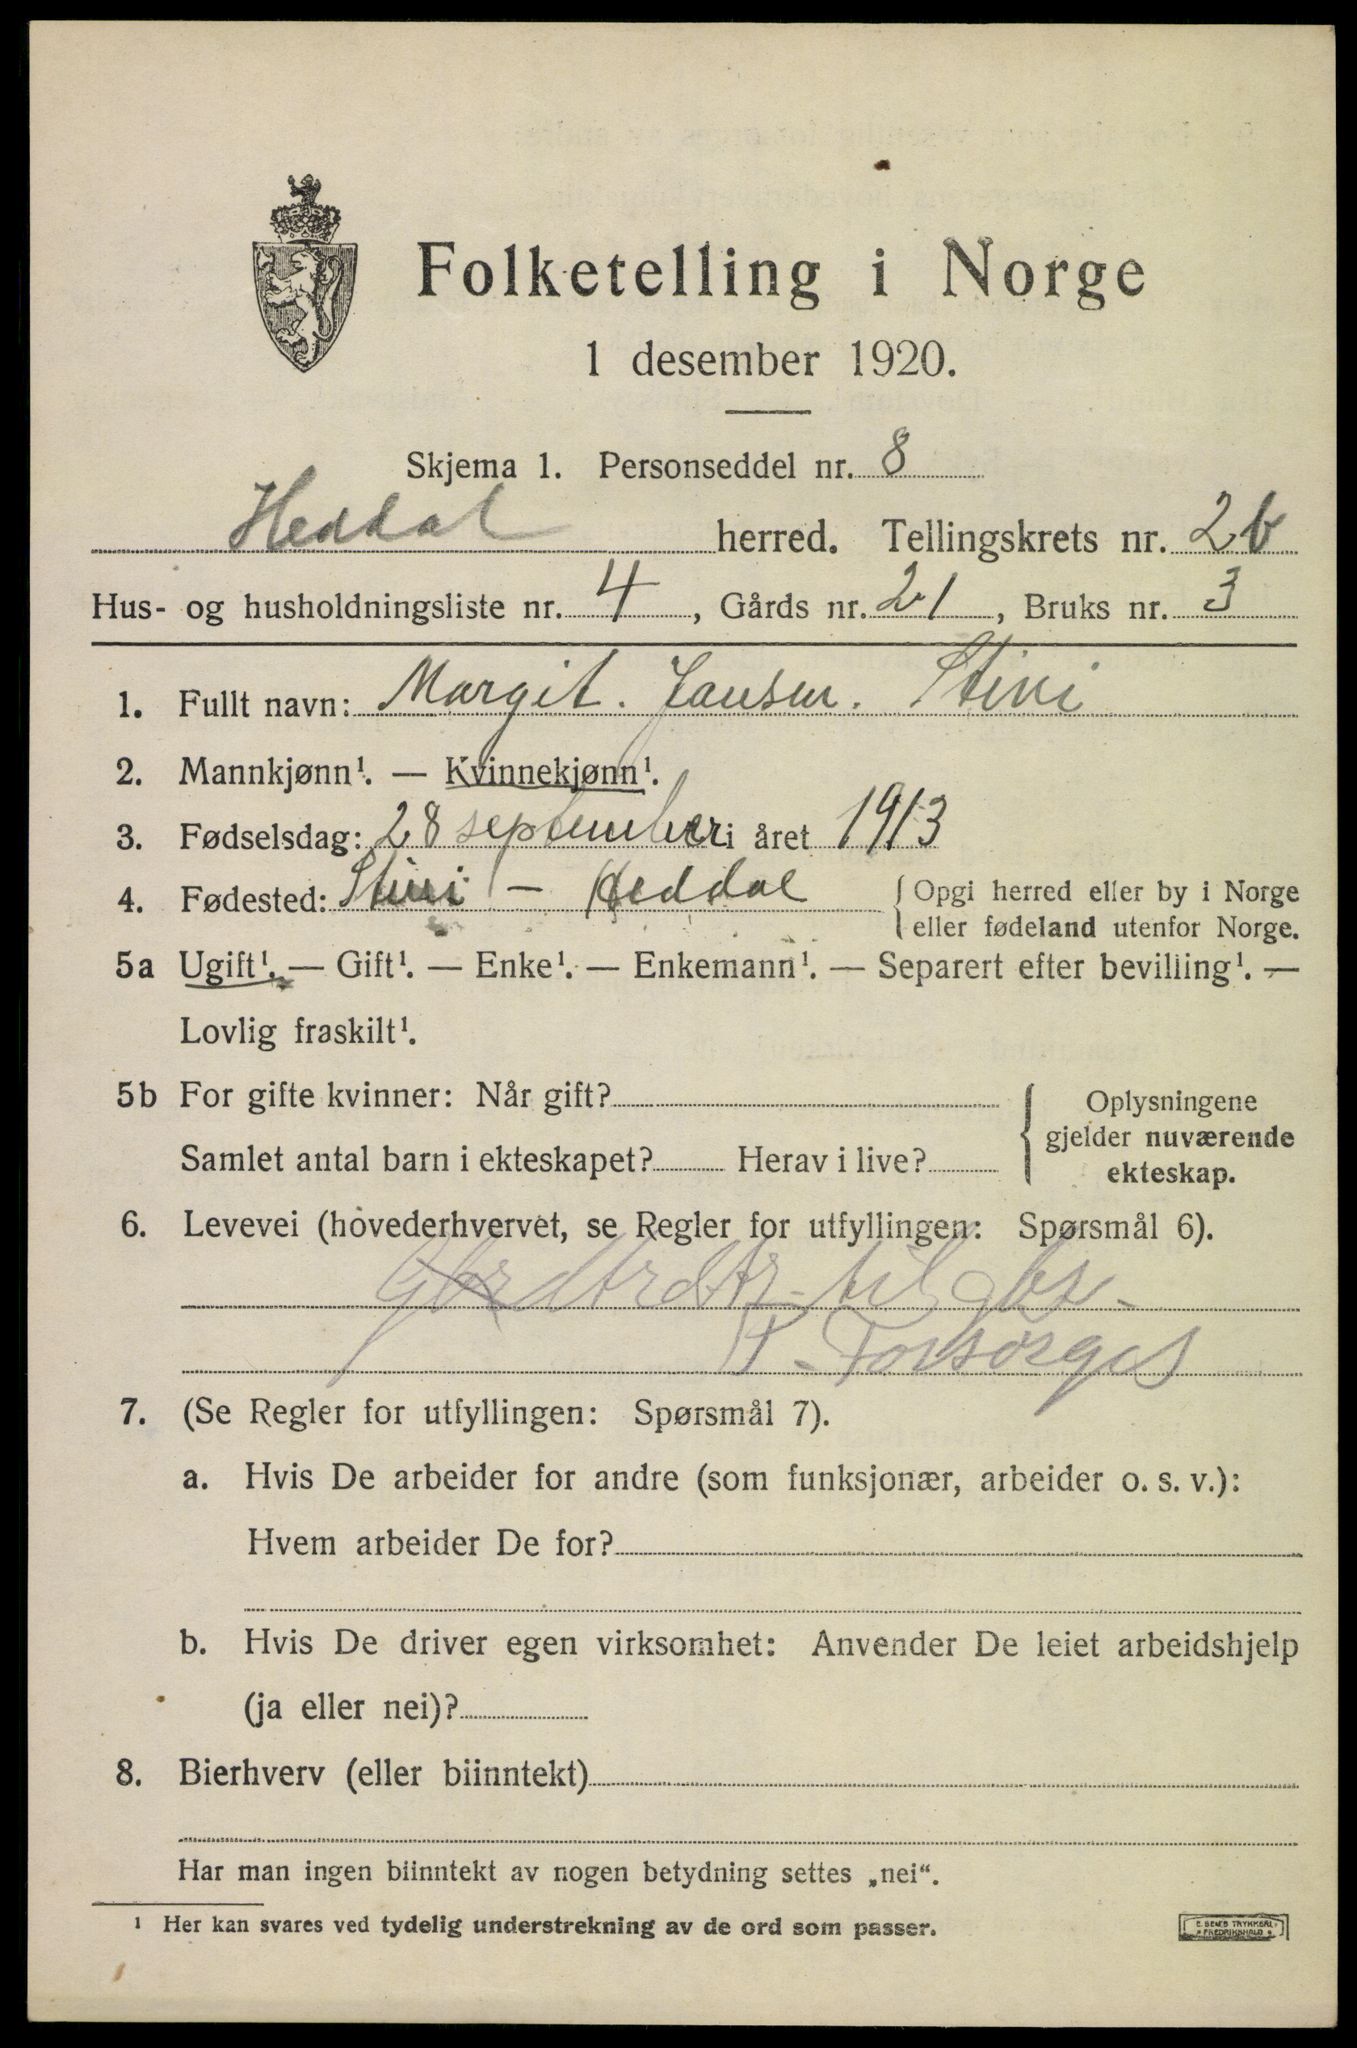 Folketelling i Norge
1 desember 1920.
Skjema 1. Personseddel nr. 8
Heddal herred. Tellingskrets nr. 2b
Hus- og husholdningsliste nr. 4, Gårds nr. 21, Bruks nr. 3
1. Fullt navn: Margit. Jansen. Stivi
2. Mannkjønn¹. — Kvinnekjønn¹.
3. Fødselsdag: 28 september i året 1913
4. Fødested: Stivi - Heddal { Opgi herred eller by i Norge
eller fødeland utenfor Norge.
5a Ugift¹. — Gift¹. — Enke¹. — Enkemann¹. — Separert efter bevilling¹. —
Lovlig fraskilt¹.
5b For gifte kvinner: Når gift?
Samlet antal barn i ekteskapet? Herav i live?
Oplysningene
gjelder nuværende
ekteskap.
6. Levevei (hovederhvervet, se Regler for utfyllingen: Spørsmål 6).
til gbr.
Forsørges
7. (Se Regler for utfyllingen: Spørsmål 7).
a. Hvis De arbeider for andre (som funksjonær, arbeider o. s. v.):
Hvem arbeider De for?
b. Hvis De driver egen virksomhet: Anvender De leiet arbeidshjelp
(ja eller nei)?
8. Bierhverv (eller biinntekt)
Har man ingen biinntekt av nogen betydning settes „nei“.
¹ Her kan svares ved tydelig understrekning av de ord som passer.
E. SEMS TRYKKERI
FREDRIKSHALD